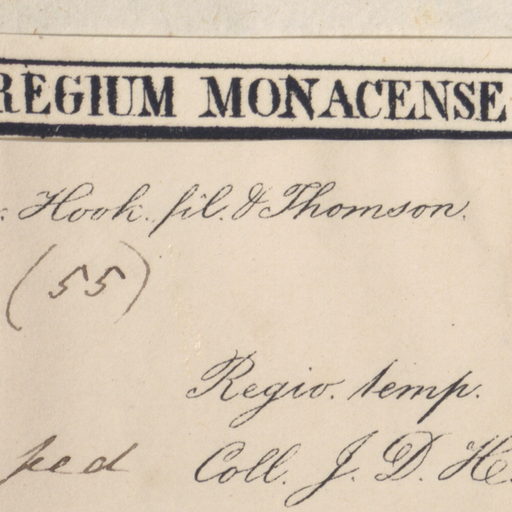 REGIUM MONACENSE
: Hook. fil. & Thomson.
(55)
Regio. temp.
ped Coll. J. D. H.